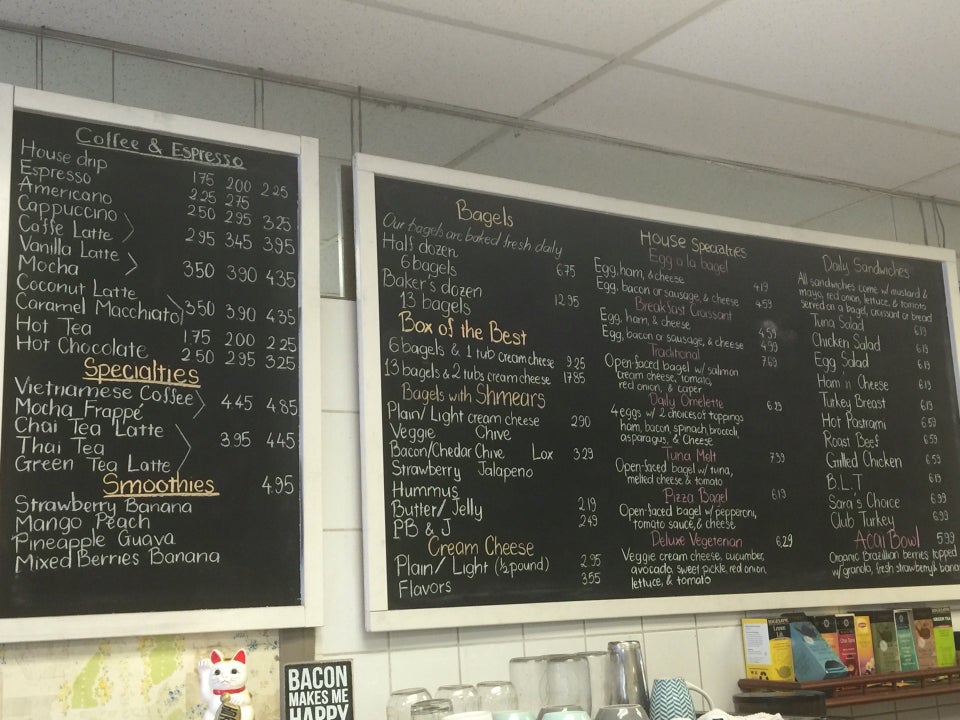 Coffee & Espresso
House drip 175 200 225
Espresso 225 275
Americano 250 295 325
Cappuccino
Caffe Latte 295 345 395
Vanilla Latte
Mocha 350 390 435
Coconut Latte
Caramel Macchiato 350 390 435
Hot Tea 175 200 225
Hot Chocolate 250 295 325
Specialties
Vietnamese Coffee 445 485
Mocha Frappé
Chai Tea Latte
Thai Tea 395 445
Green Tea Latte
Smoothies 495
Strawberry Banana
Mango Peach
Pineapple Guava
Mixed Berries Banana
Bagels
Our bagels are baked fresh daily
Half dozen
6 bagels 675
Baker's dozen
13 bagels 1295
Box of the Best
6 bagels & 1 tub cream cheese 925
13 bagels & 2 tubs cream cheese 1785
Bagels with Shmears
Plain/Light cream cheese 290
Veggie Chive
Bacon/Chedar Chive Lox 329
Strawberry Jalapeno
Hummus
Butter/Jelly 219
PB & J 249
Cream Cheese
Plain/Light (½ pound) 295
Flavors 355
House Specialties
Egg a la bagel
Egg, ham, & cheese 419
Egg, bacon or sausage, & cheese 459
Breakfast Croissant
Egg, ham, & cheese 459
Egg, bacon or sausage, & cheese 499
Traditional 769
Open-faced bagel w/ salmon
cream cheese, tomato,
red onion, & caper
Daily Omelette 619
4 eggs w/ 2 choices of toppings
ham, bacon, spinach, broccoli,
asparagus, & Cheese
Tuna Melt 799
Open-faced bagel w/ tuna,
melted cheese & tomato
Pizza Bagel 619
Open-faced bagel w/ pepperoni,
tomato sauce, & cheese
Deluxe Vegeterian 6.29
Veggie cream cheese, cucumber,
avocado, sweet pickle, red onion,
lettuce, & tomato
Daily Sandwiches
All sandwiches come w/ mustard &
mayo, red onion, lettuce, & tomato,
served on a bagel, croissant or bread
Tuna Salad 619
Chicken Salad 619
Egg Salad 619
Ham n Cheese 619
Turkey Breast 619
Hot Pastrami 659
Roast Beef 659
Grilled Chicken 659
B.L.T 619
Sara's Choice 699
Club Turkey 699
Acai Bowl 599
Organic Brazillian berries topped
w/granola, fresh strawberry & bana
BACON
MAKES ME
HAPPY
GREEN TEA